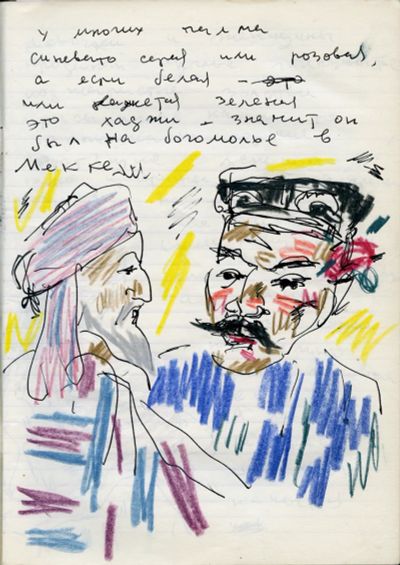 у многих чалма
синевато серая или розовая,
а если белая –
или кажется зеленая
это хаджи – значит он
был на богомолье в
Мекке